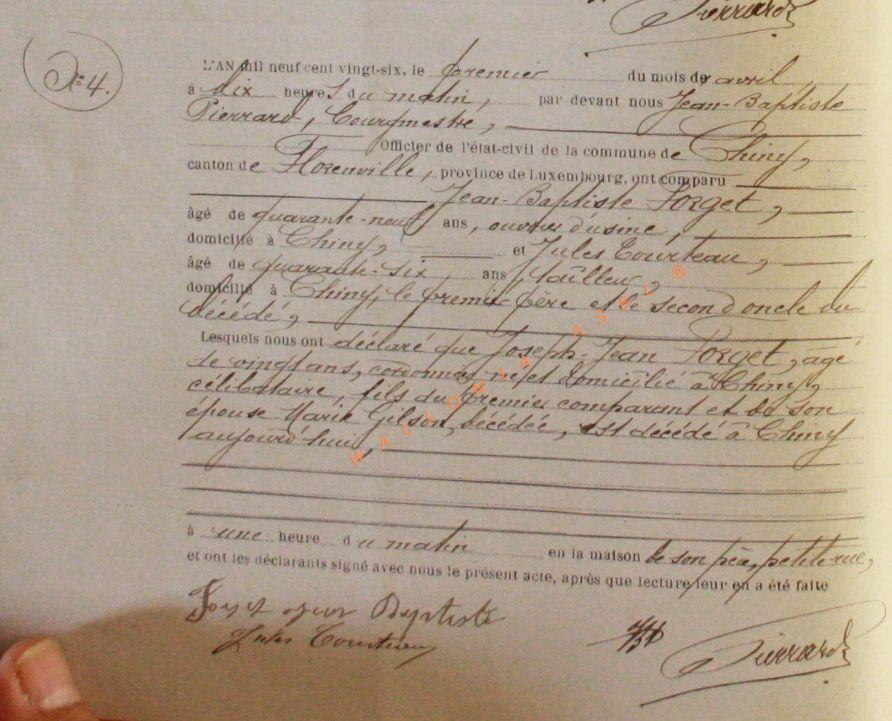 Pierrard
N° 4.
L'AN mil neuf cent vingt-six, le premier du mois de avril
à dix heures du matin, par devant nous Jean-Baptiste
Pierrard, Bourgmestre,
Officier de l'état-civil de la commune de Chiny,
canton de Florenville, province de Luxembourg, ont comparu
Jean-Baptiste Forget,
âgé de quarante-neuf ans, ouvrier d'usine,
domicilié à Chiny, et Jules Courteau,
âgé de quarante-six, ans, tailleur,
domicilié à Chiny, le premier père et le second oncle du
décédé,
Lesquels nous ont déclaré que Joseph-Jean Forget, âgé
de vingt ans, cordonnier, né et domicilié à Chiny,
célibataire, fils du premier comparant et de son
épouse Marie Gilson, décédée, est décédé à Chiny
aujourd'hui,
WALLONIA ASBL ®
à une heure du matin en la maison de son père, petite rue,
et ont les déclarants signé avec nous le présent acte, après que lecture leur en a été faite
Baptiste
Jules Courteau
Pierrard